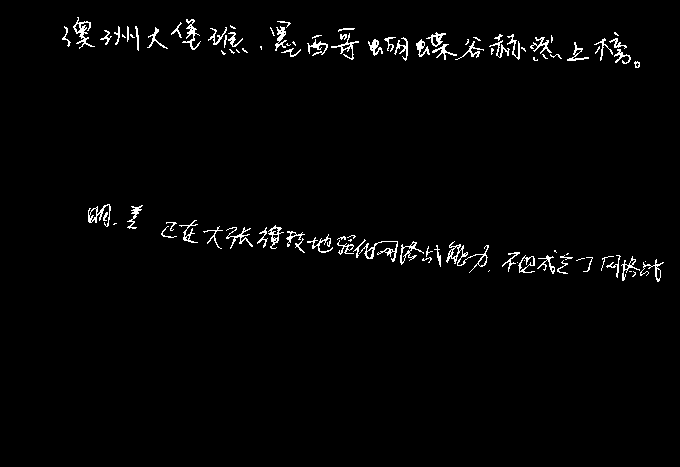 澳洲大堡礁、墨西哥蝴蝶谷赫然上榜。
明、美 已在大张旗鼓地强化网络战能力,不但成立了网络战